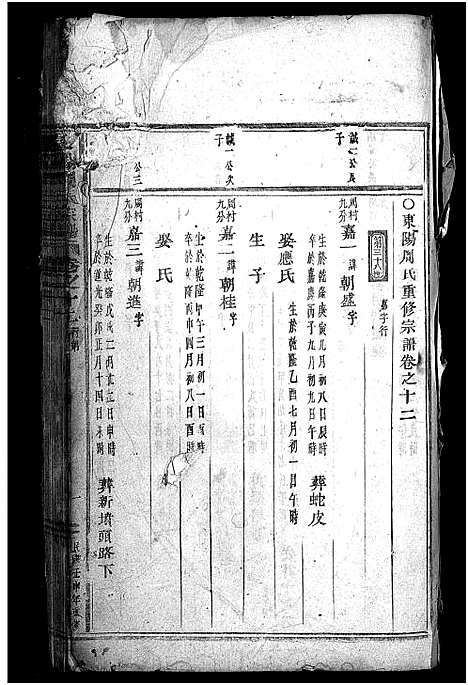 ○東陽周氏重修宗譜卷之十二
第三十八世
嘉字行
誠一公長子
周村九分
嘉一諱朝盛字
生於乾隆庚寅九月初八日辰時
卒於嘉慶丙子九月初九日午時
葬蛇皮
娶應氏
生於乾隆乙酉七月初一日午時
生子
誠一公次子
周村九分
嘉二諱朝桂字
生於乾隆甲午三月初一日酉時
卒於丙申四月初八日酉時
娶氏
公三
周村九分
嘉三諱朝進字
生於乾隆戊戌二月
日申時
卒於道光癸卯正月十四日未時
葬新墳頭路下